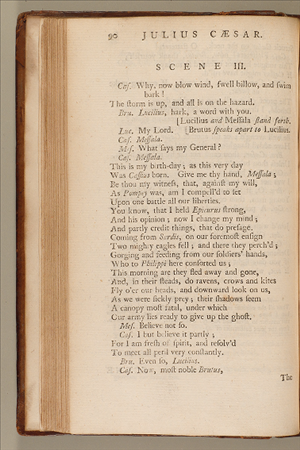 90 JULIUS CÆSAR.
SCENE III.
Caſ. Why, now blow wind, ſwell billow, and ſwim
bark!
The ſtorm is up, and all is on the hazard.
Bru. Lucilius, hark, a word with you.
[Lucilius and Meſſala ſtand forth.
Luc. My Lord. [Brutus ſpeaks apart to Lucilius.
Caſ. Meſſala.
Meſ. What ſays my General?
Caſ. Meſſala.
This is my birth-day; as this very day
Was Caſſius born. Give me thy hand, Meſſala;
Be thou my witneſs, that, againſt my will,
As Pompey was, am I compell'd to ſet
Upon one battle all our liberties.
You know, that I held Epicurus ſtrong,
And his opinion; now I change my mind;
And partly credit things, that do preſage.
Coming from Sardis, on our foremoſt enſign
Two mighty eagles fell; and there they perch'd;
Gorging and feeding from our ſoldiers' hands,
Who to Philippi here conſorted us;
This morning are they fled away and gone,
And, in their ſteads, do ravens, crows and kites
Fly o'er our heads, and downward look on us,
As we were ſickly prey; their ſhadows ſeem
A canopy moſt fatal, under which
Our army lies ready to give up the ghoſt.
Meſ. Believe not ſo.
Caſ. I but believe it partly;
For I am freſh of ſpirit, and reſolv'd
To meet all peril very conſtantly.
Bru. Even ſo, Lucilius.
Caſ. Now, moſt noble Brutus,
The